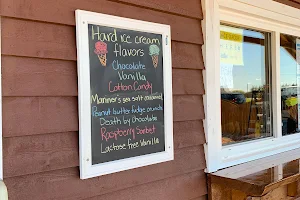 Hard ice cream
flavors
Chocolate
Vanilla
Cotton Candy
Mariner's sea salt caramel
Peanut butter fudge crunch
Death by Chocolate
Raspberry Sorbet
Lactose free Vanilla